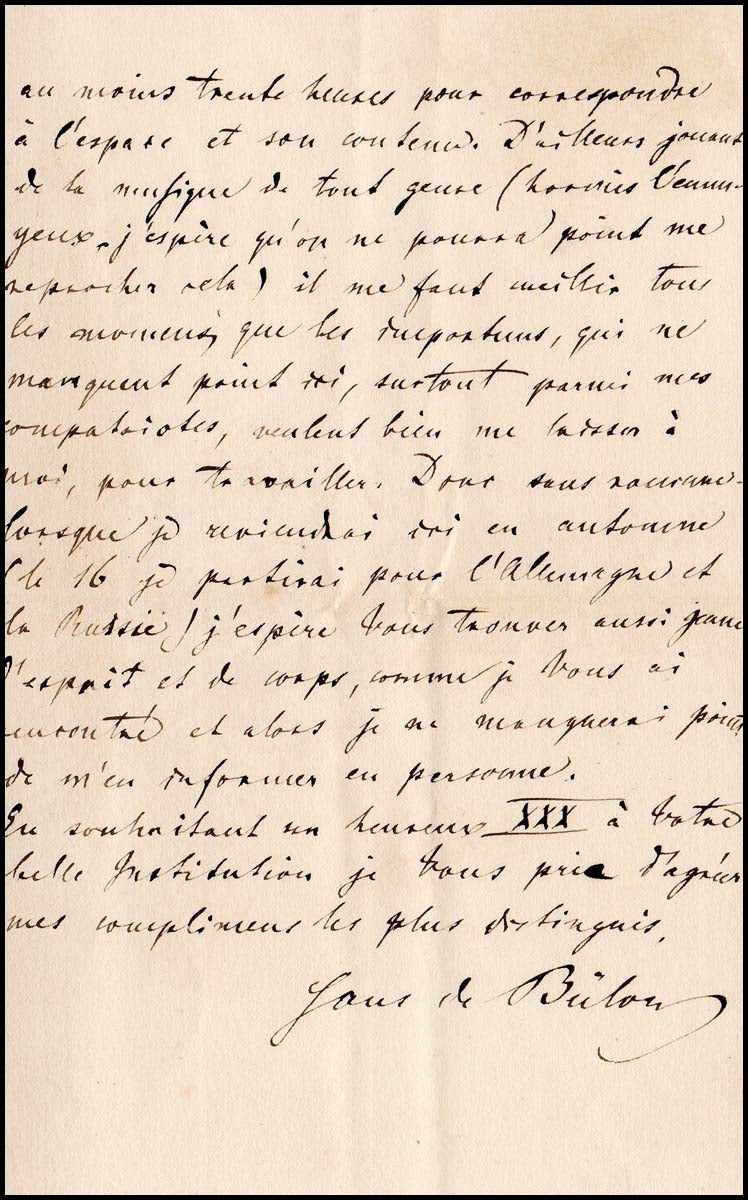 au moins trente heures pour correspondre
à l'espace et son contenu. D'ailleurs jouant
de la musique de tout genre (hormis l'ennu-
yeux, j'espère qu'on ne pourra point me
reprocher cela) il me faut cueillir tous
les momens, que les importuns, qui ne
manquent point ici, surtout parmi mes
compatriotes, veulent bien me laisser à
moi, pour travailler. Donc sans rancune –
lorsque je reviendrai ici en automne
(le 16 je partirai pour l'Allemagne et
la Russie) j'espère Vous trouver aussi jeune
d'esprit et de corps, comme je Vous ai
rencontré et alors je ne manquerai point
de m'en informer en personne.
En souhaitant un heureux XXX à Votre
belle Institution je Vous prie d'agréer
mes complimens les plus distingués.
Hans de Bülow